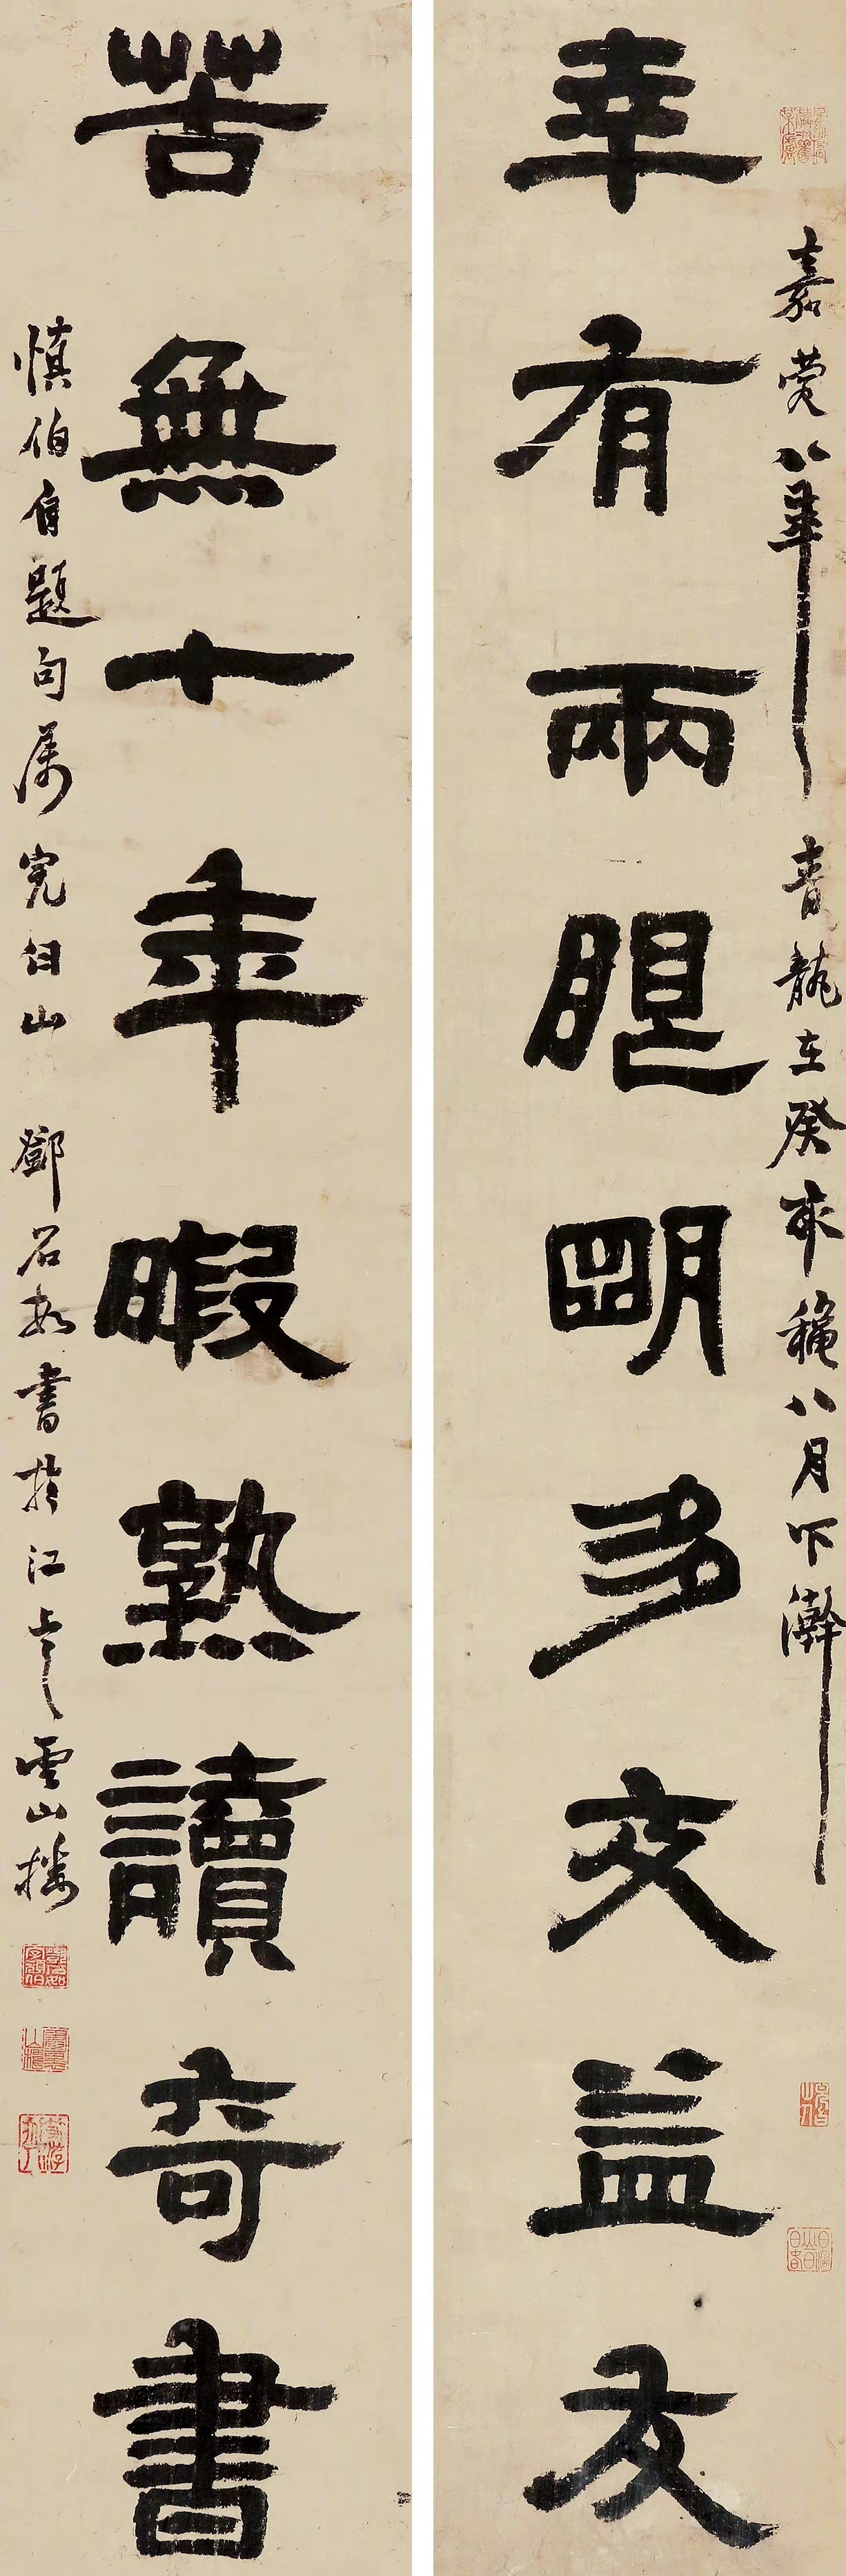 嘉慶八年青龍在癸未龝八月下澣
幸有兩眼明多交益友
苦無十年暇熟讀奇書
慎伯自題句属完白山鄧石如書於江上之雲山樓